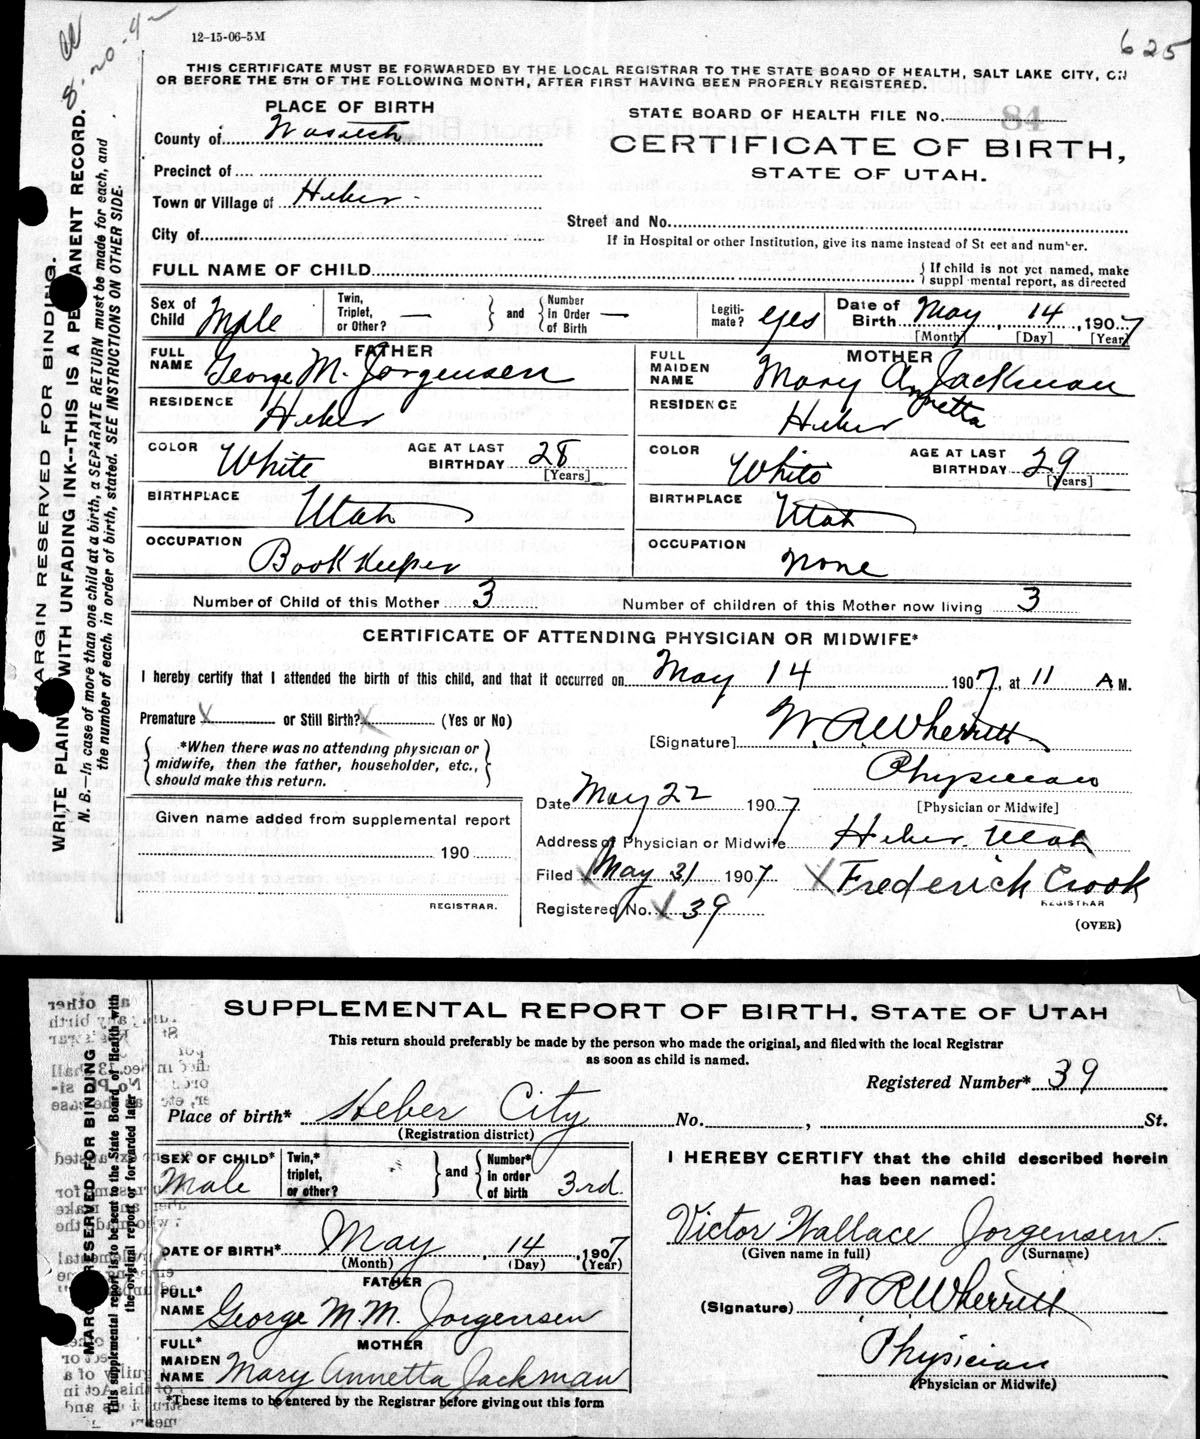 12-15-06-5M
625
8-20-4
THIS CERTIFICATE MUST BE FORWARDED BY THE LOCAL REGISTRAR TO THE STATE BOARD OF HEALTH, SALT LAKE CITY, ON
OR BEFORE THE 5TH OF THE FOLLOWING MONTH, AFTER FIRST HAVING BEEN PROPERLY REGISTERED.
PLACE OF BIRTH
County of Wasatch
Precinct of
Town or Village of Heber
City of
STATE BOARD OF HEALTH FILE No. 84
CERTIFICATE OF BIRTH,
STATE OF UTAH.
Street and No.
If in Hospital or other Institution, give its name instead of St eet and number.
FULL NAME OF CHILD
If child is not yet named, make
suppl mental report, as directed
Sex of Child Male
Twin, Triplet, or Other? —
and
Number in Order of Birth —
Legiti-mate? eyes
Date of Birth May, 14, 1907
[Month] [Day] [Year]
FATHER
FULL NAME George M. Jorgensen
RESIDENCE Heber
COLOR White
AGE AT LAST BIRTHDAY 28
[Years]
BIRTHPLACE Utah
OCCUPATION Book Keeper
MOTHER
FULL MAIDEN NAME Mary Annetta Jackman
RESIDENCE Heber
COLOR White
AGE AT LAST BIRTHDAY 29
[Years]
BIRTHPLACE Utah
OCCUPATION None
Number of Child of this Mother 3
Number of children of this Mother now living 3
CERTIFICATE OF ATTENDING PHYSICIAN OR MIDWIFE*
I hereby certify that I attended the birth of this child, and that it occurred on May 14 1907, at 11 A M.
Premature X or Still Birth? X (Yes or No)
*When there was no attending physician or
midwife, then the father, householder, etc.,
should make this return.
[Signature] W. R. Wherritt
Physician
[Physician or Midwife]
Date May 22 1907
Address of Physician or Midwife Heber. Utah
Filed X May 31 1907 X Frederick Crook
REGISTRAR
Registered No. X 39
(OVER)
Given name added from supplemental report
190
REGISTRAR.
MARGIN RESERVED FOR BINDING.
WRITE PLAIN WITH UNFADING INK--THIS IS A PE ANENT RECORD.
N. B.—In case of more than one child at a birth, a SEPARATE RETURN must be made for each, and
the number of each, in order of birth, stated. SEE INSTRUCTIONS ON OTHER SIDE.
SUPPLEMENTAL REPORT OF BIRTH, STATE OF UTAH
This return should preferably be made by the person who made the original, and filed with the local Registrar
as soon as child is named.
Registered Number* 39
Place of birth* Heber City No. , St.
(Registration district)
SEX OF CHILD* Male
Twin,* triplet, or other?
and
Number* in order of birth 3rd.
DATE OF BIRTH* May, 14, 1907
(Month) (Day) (Year)
FATHER
FULL* NAME George M. M. Jorgensen
MOTHER
FULL* MAIDEN NAME Mary Annetta Jackman
*These items to be entered by the Registrar before giving out this form
I HEREBY CERTIFY that the child described herein
has been named:
Victor Wallace Jorgensen.
(Given name in full) (Surname)
(Signature) W R Wherritt
Physician
(Physician or Midwife)
MARG RESERVED FOR BINDING
This supplemental report is to be sent to the State Board of Health with
the original report or forwarded later